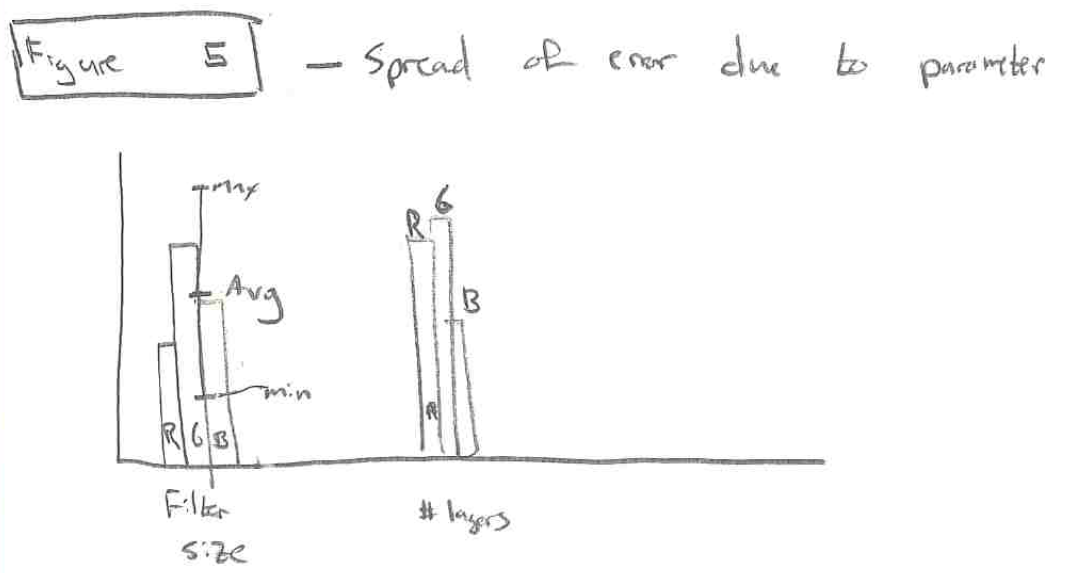 Figure 5 — Spread of error due to parameter
max
R G
Avg
B
min
R G B
R
Filter
size
# layers